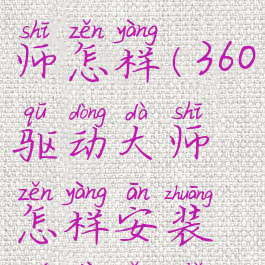 shī zěn yàng
师怎样(360
qū dòng dà shī
驱动大师
zěn yàng ān zhuāng
怎样安装